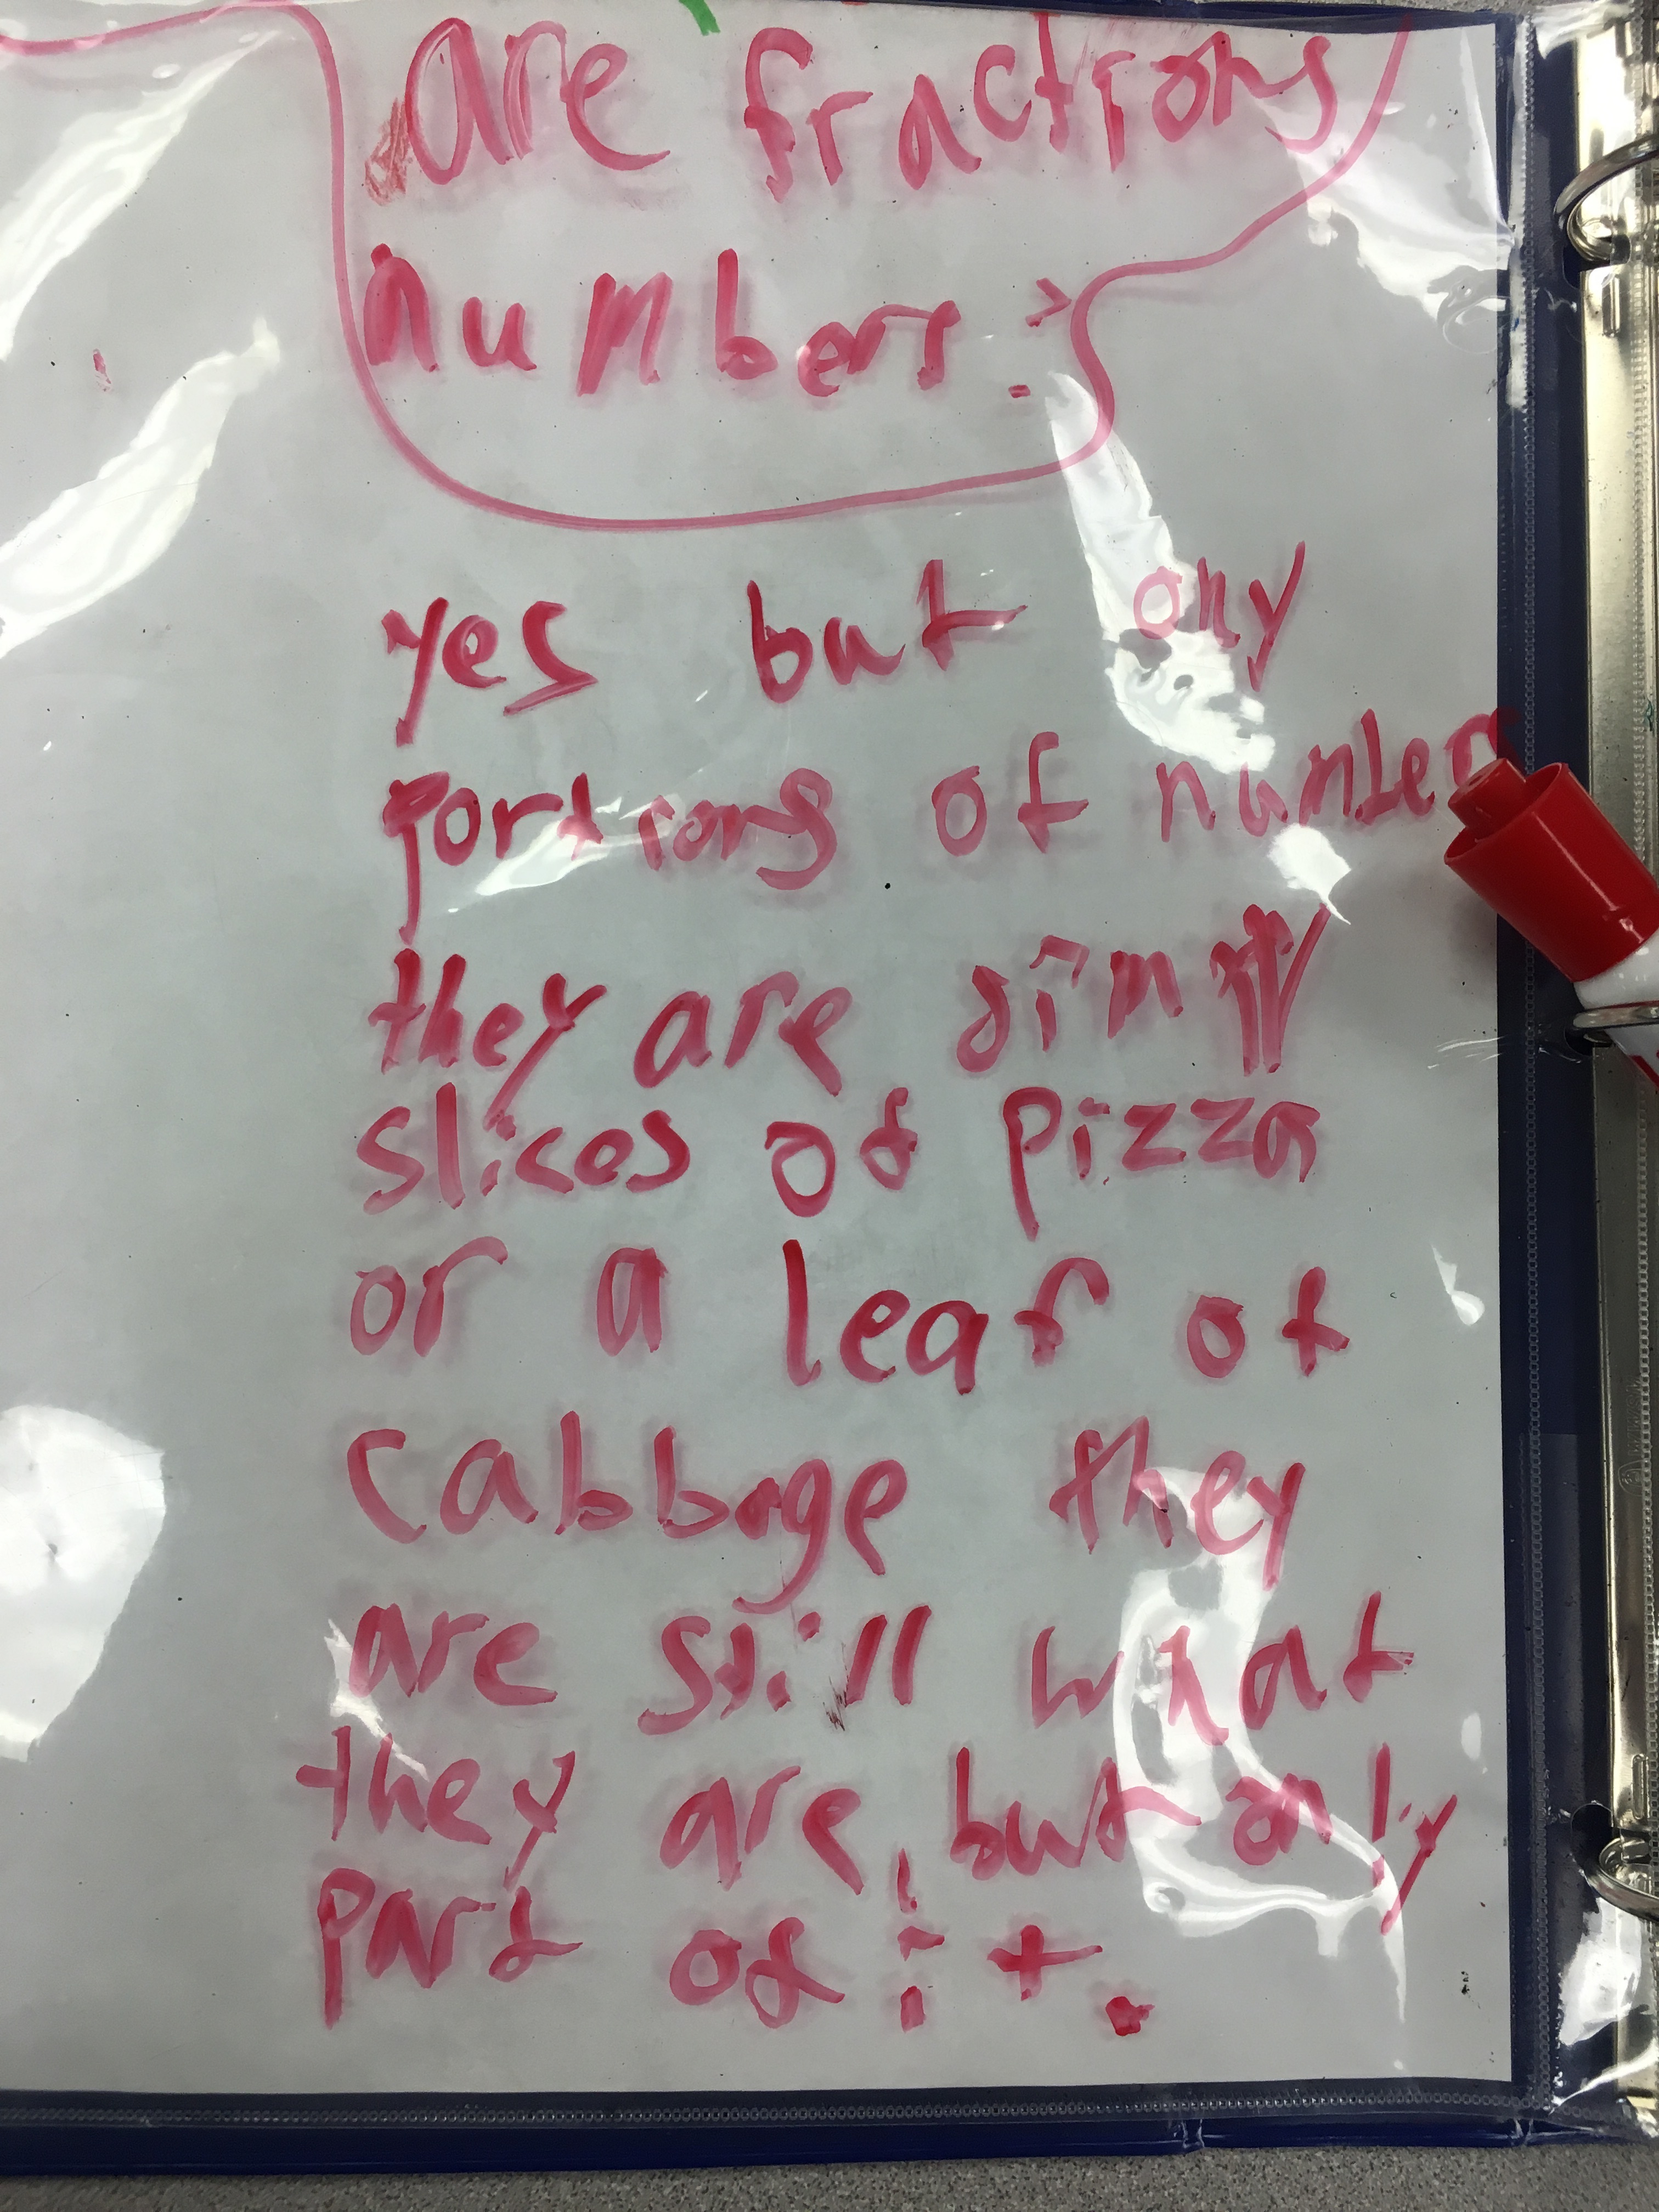 are fractions
numbers?
yes but ony
portions of numbers
they are simply
slices of pizza
or a leaf of
cabbage they
are still what
they are, but only
part of it.